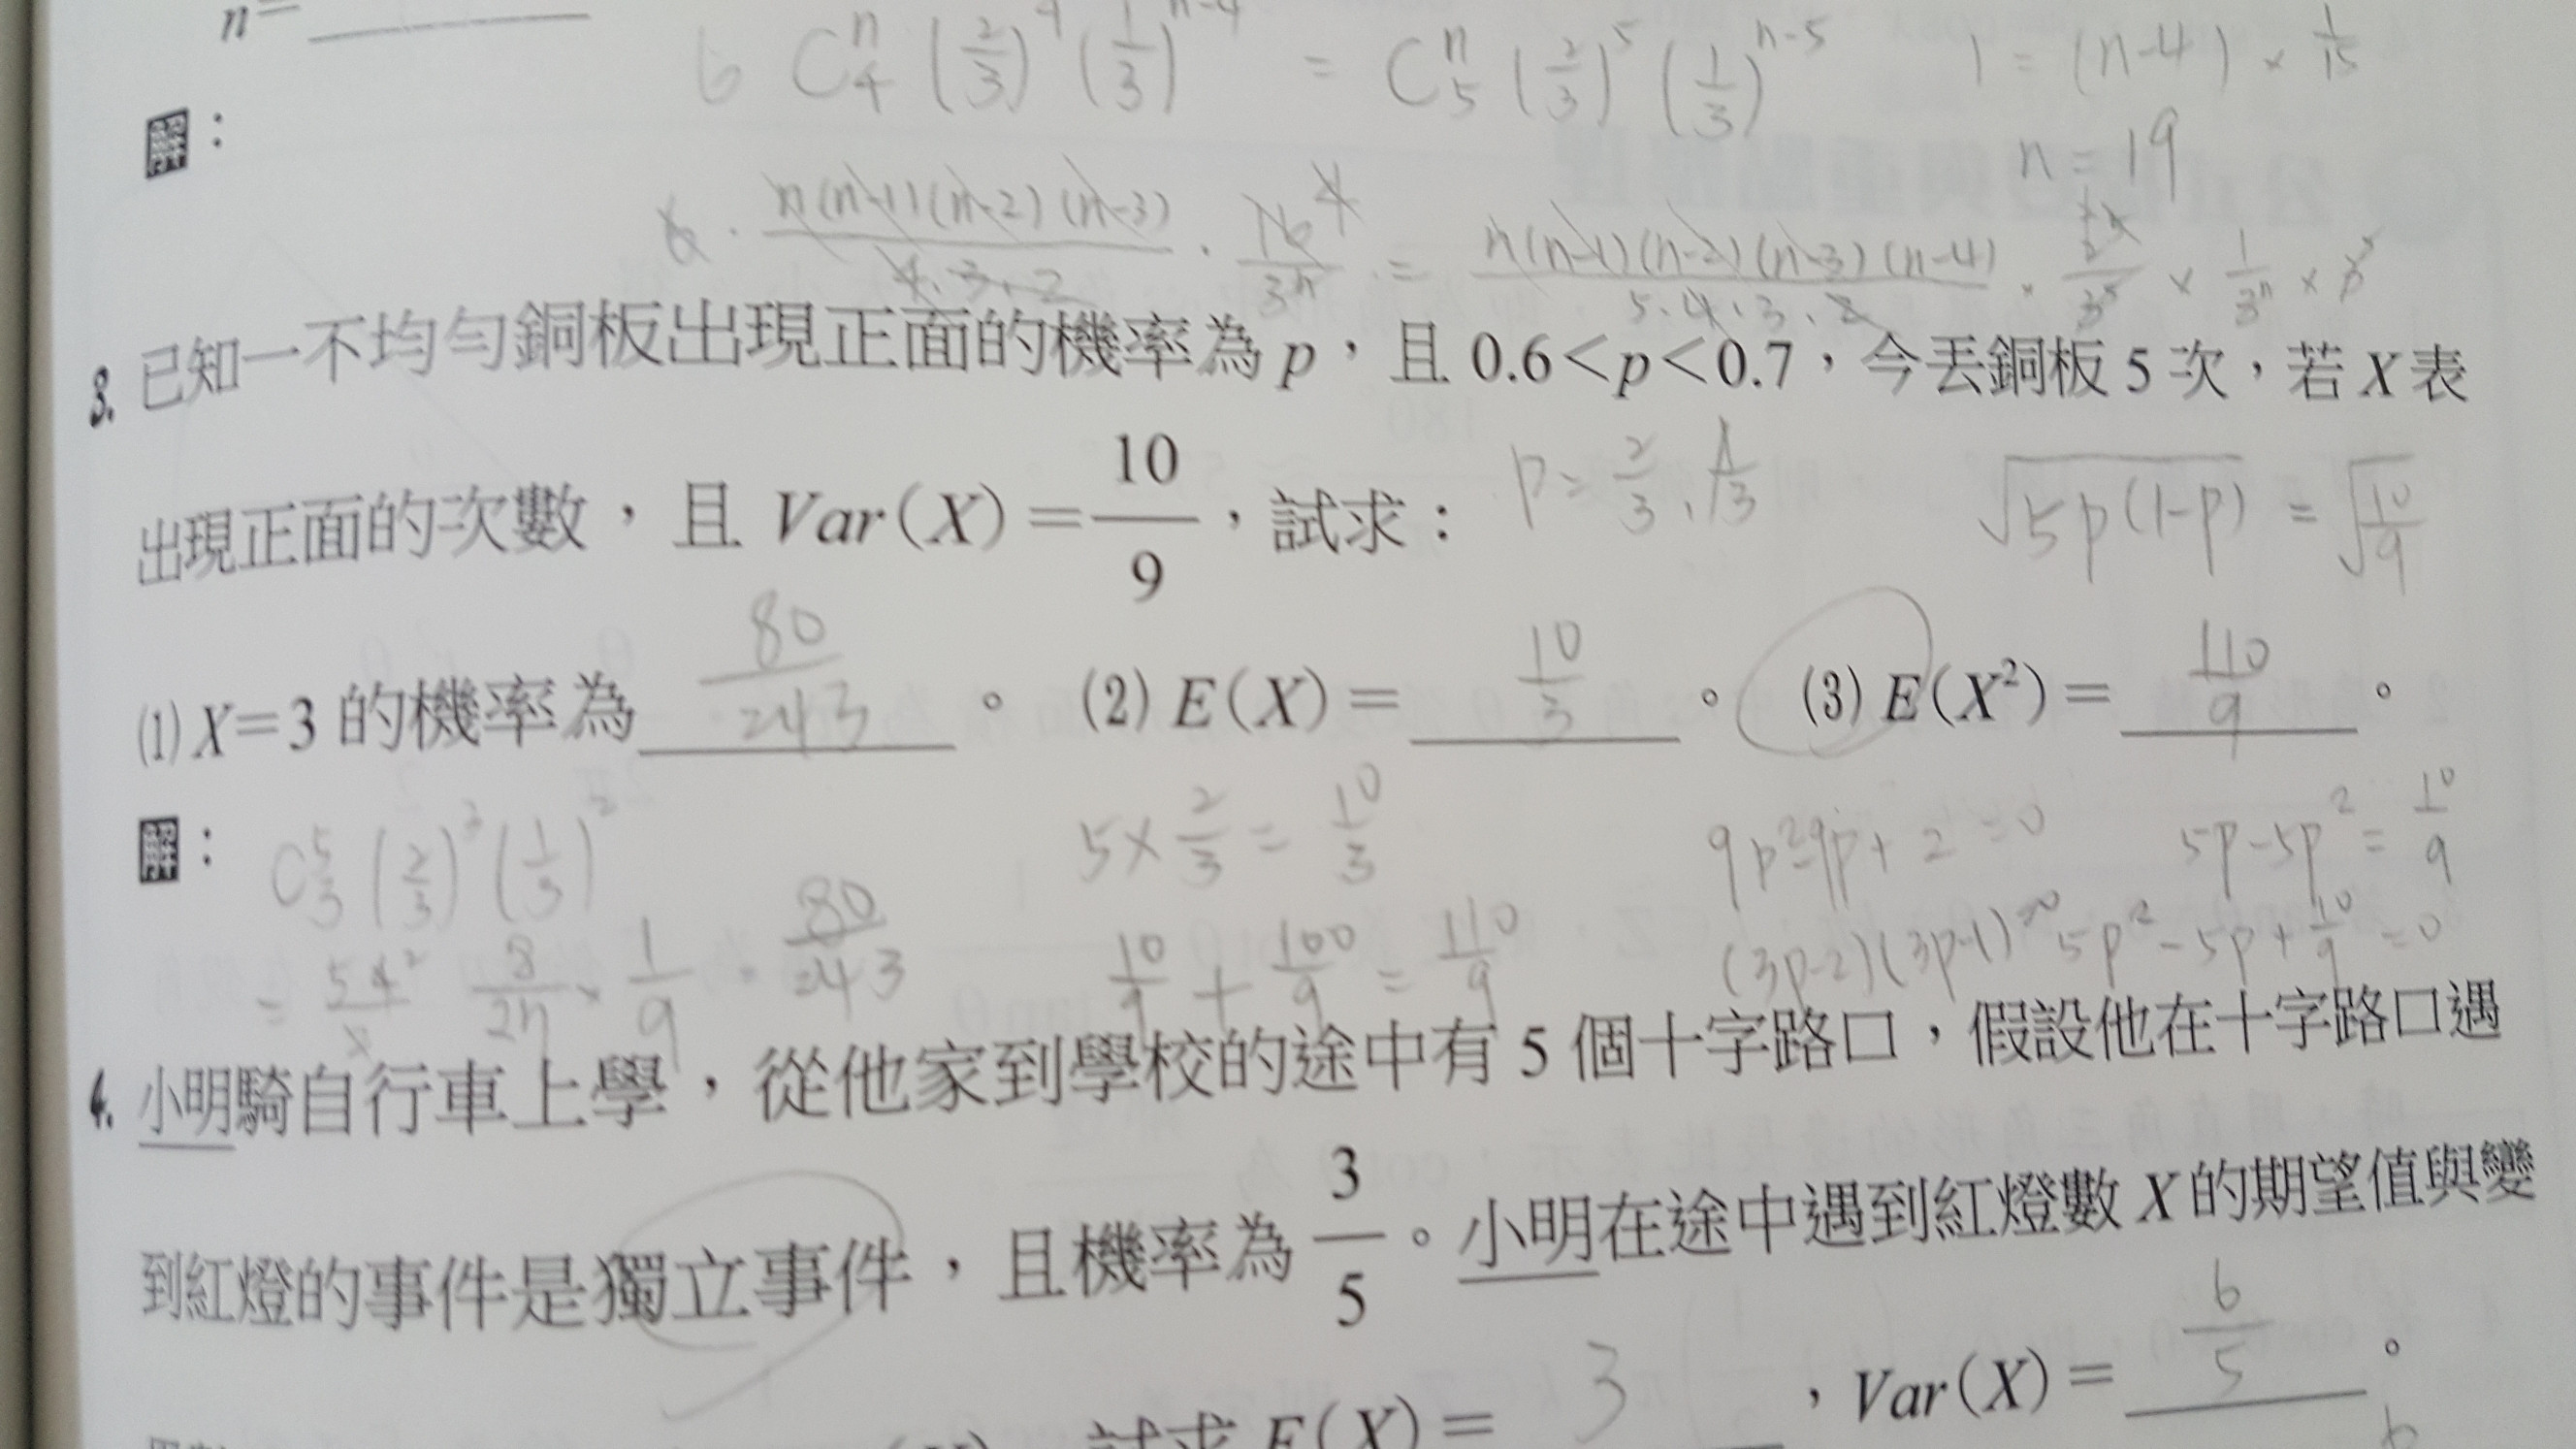 n=
6 C₄ⁿ (2/3)⁴ (1/3)ⁿ⁻⁴ = C₅ⁿ (2/3)⁵ (1/3)ⁿ⁻⁵
1 = (n-4) × 1/15
n = 19
解：
6 · n(n-1)(n-2)(n-3)/4·3·2 · 16/3ⁿ = n(n-1)(n-2)(n-3)(n-4)/5·4·3·2
3. 已知一不均勻銅板出現正面的機率為 p，且 0.6＜p＜0.7，今丟銅板 5 次，若 X 表
出現正面的次數，且 Var(X)=10/9，試求：
p = 2/3, 1/3
√5p(1-p) = √10/9
(1) X=3 的機率為 80/243 。 (2) E(X)= 10/3 。 (3) E(X²)= 110/9 。
解：
C₃⁵ (2/3)³ (1/3)²
5×2/3 = 10/3
9p²-9p+2=0
5p-5p²=10/9
= 5·4/2 8/27 × 1/9 = 80/243
10/9 + 100/9 = 110/9
(3p-2)(3p-1)=0
5p²-5p+10/9=0
4. 小明騎自行車上學，從他家到學校的途中有 5 個十字路口，假設他在十字路口遇
到紅燈的事件是獨立事件，且機率為 3/5。小明在途中遇到紅燈數 X 的期望值與變
試求 E(X)= 3 ，Var(X)= 6/5 。